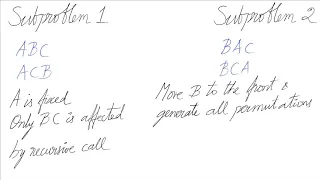 Subproblem 1
ABC
ACB
A is fixed
Only BC is affected
by recursive call
Subproblem 2
BAC
BCA
Move B to the front &
generate all permutations